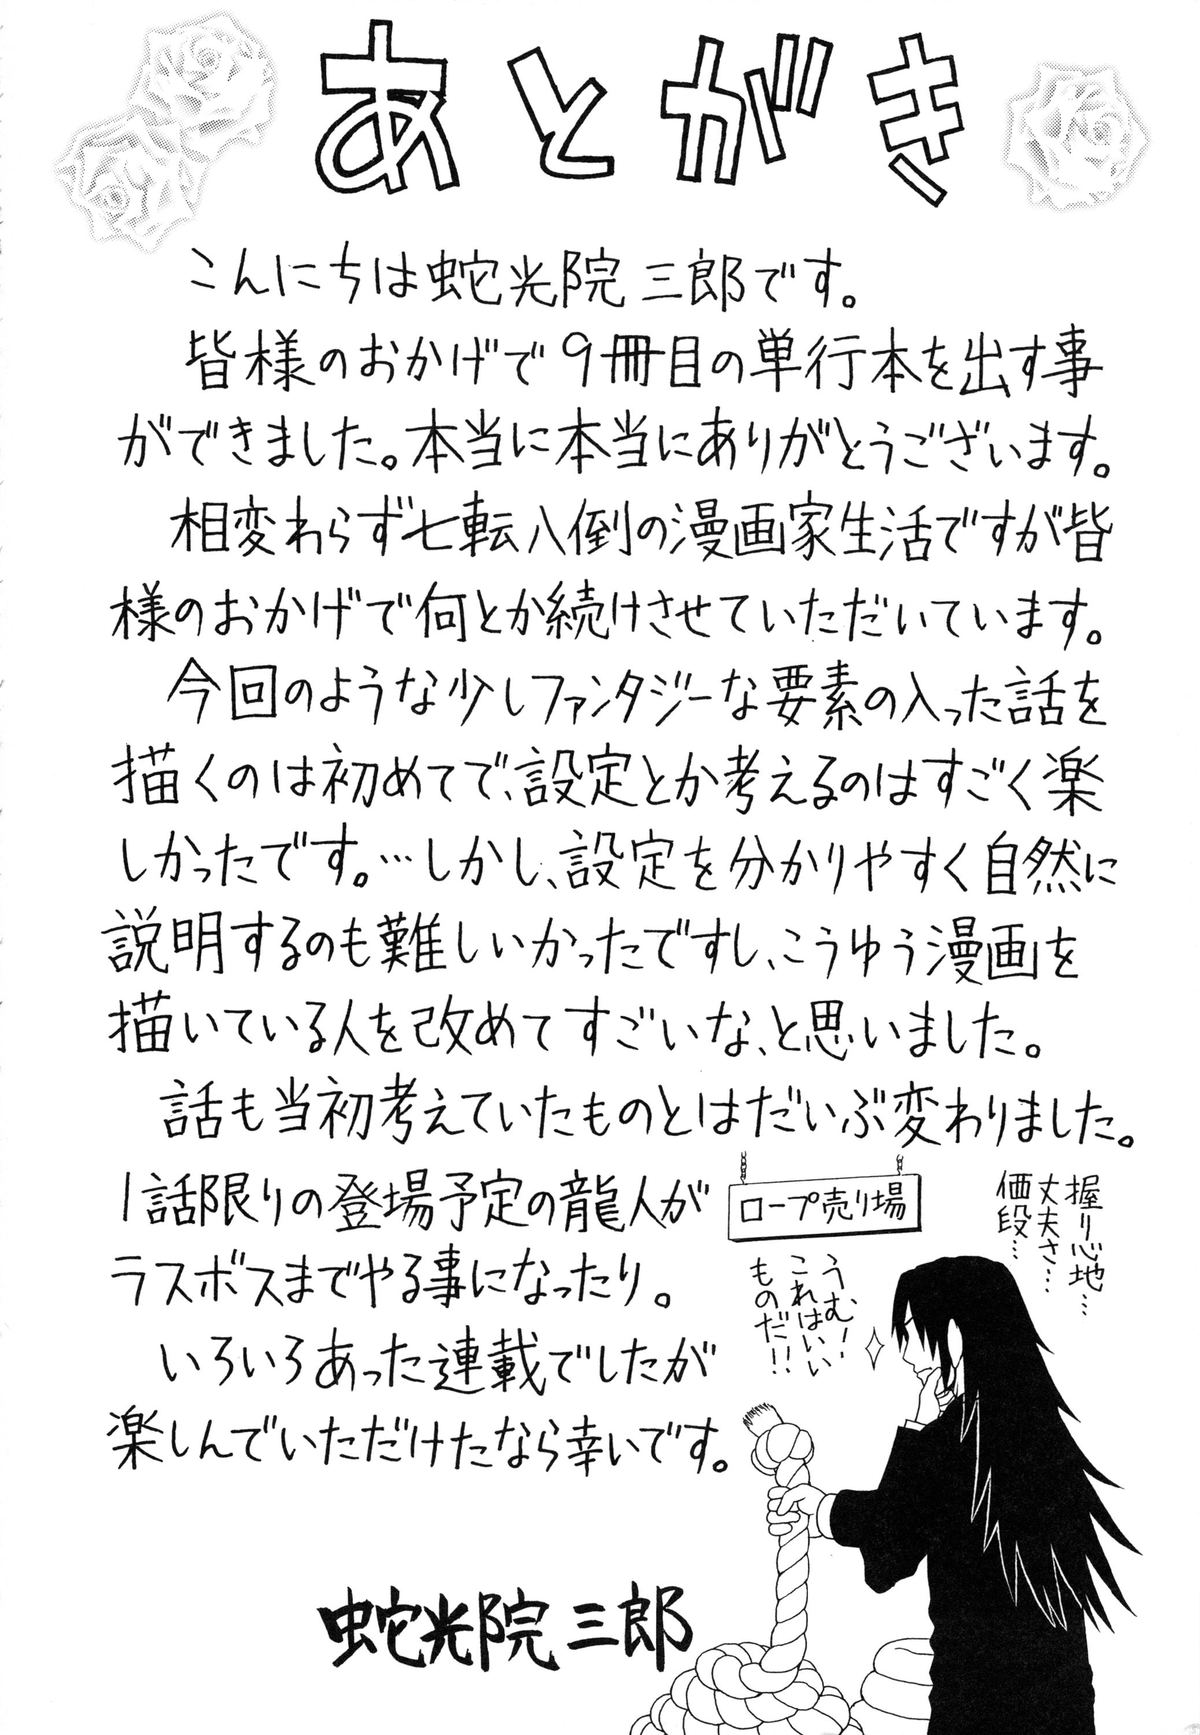 あとがき
こんにちは蛇光院三郎です。
皆様のおかげで9冊目の単行本を出す事
ができました。本当に本当にありがとうございます。
相変わらず七転八倒の漫画家生活ですが皆
様のおかげで何とか続けさせていただいています。
今回のような少しファンタジーな要素の入った話を
描くのは初めてで、設定とか考えるのはすごく楽
しかったです。…しかし、設定を分かりやすく自然に
説明するのも難しいかったですし、こうゆう漫画を
描いている人を改めてすごいな、と思いました。
話も当初考えていたものとはだいぶ変わりました。
1話限りの登場予定の龍人が
ラスボスまでやる事になったり。
いろいろあった連載でしたが
楽しんでいただけたなら幸いです。
蛇光院三郎
ロープ売り場
握り心地…
丈夫さ…
価段…
うむ!
これはいい
ものだ!!